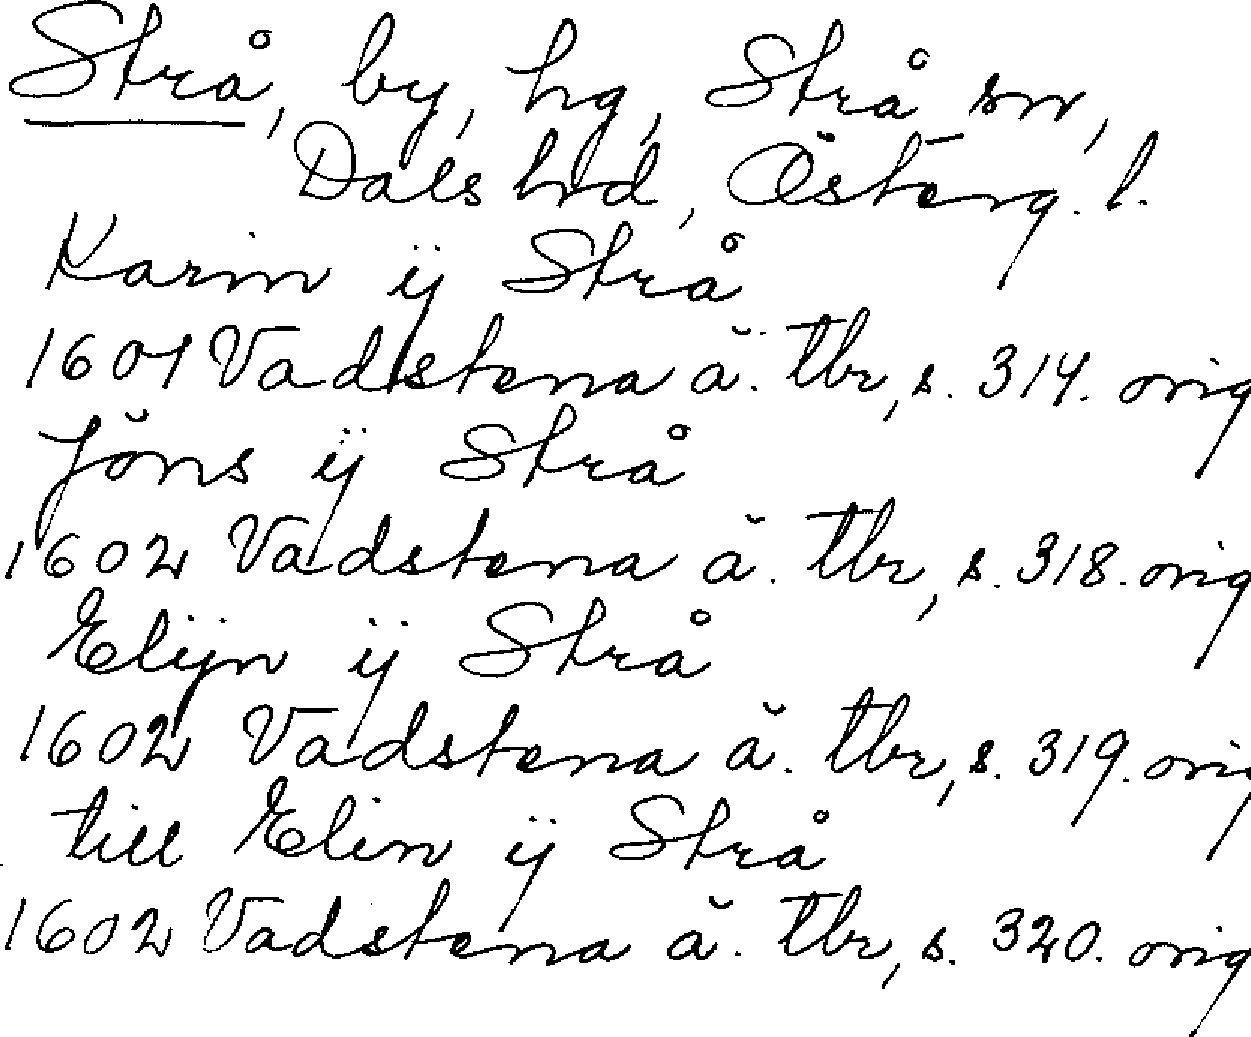 Strå, by, hg, Strå sn,
Dals hd, Österg. l.
Karin ÿ Strå
1601 Vadstena ä. tbr, s. 314. orig
Jöns ÿ Strå
1602 Vadstena ä. tbr, s. 318. orig
Elijn ÿ Strå
1602 Vadstena ä. tbr, s. 319. orig
till Elin ÿ Strå
1602 Vadstena ä. tbr, s. 320. orig